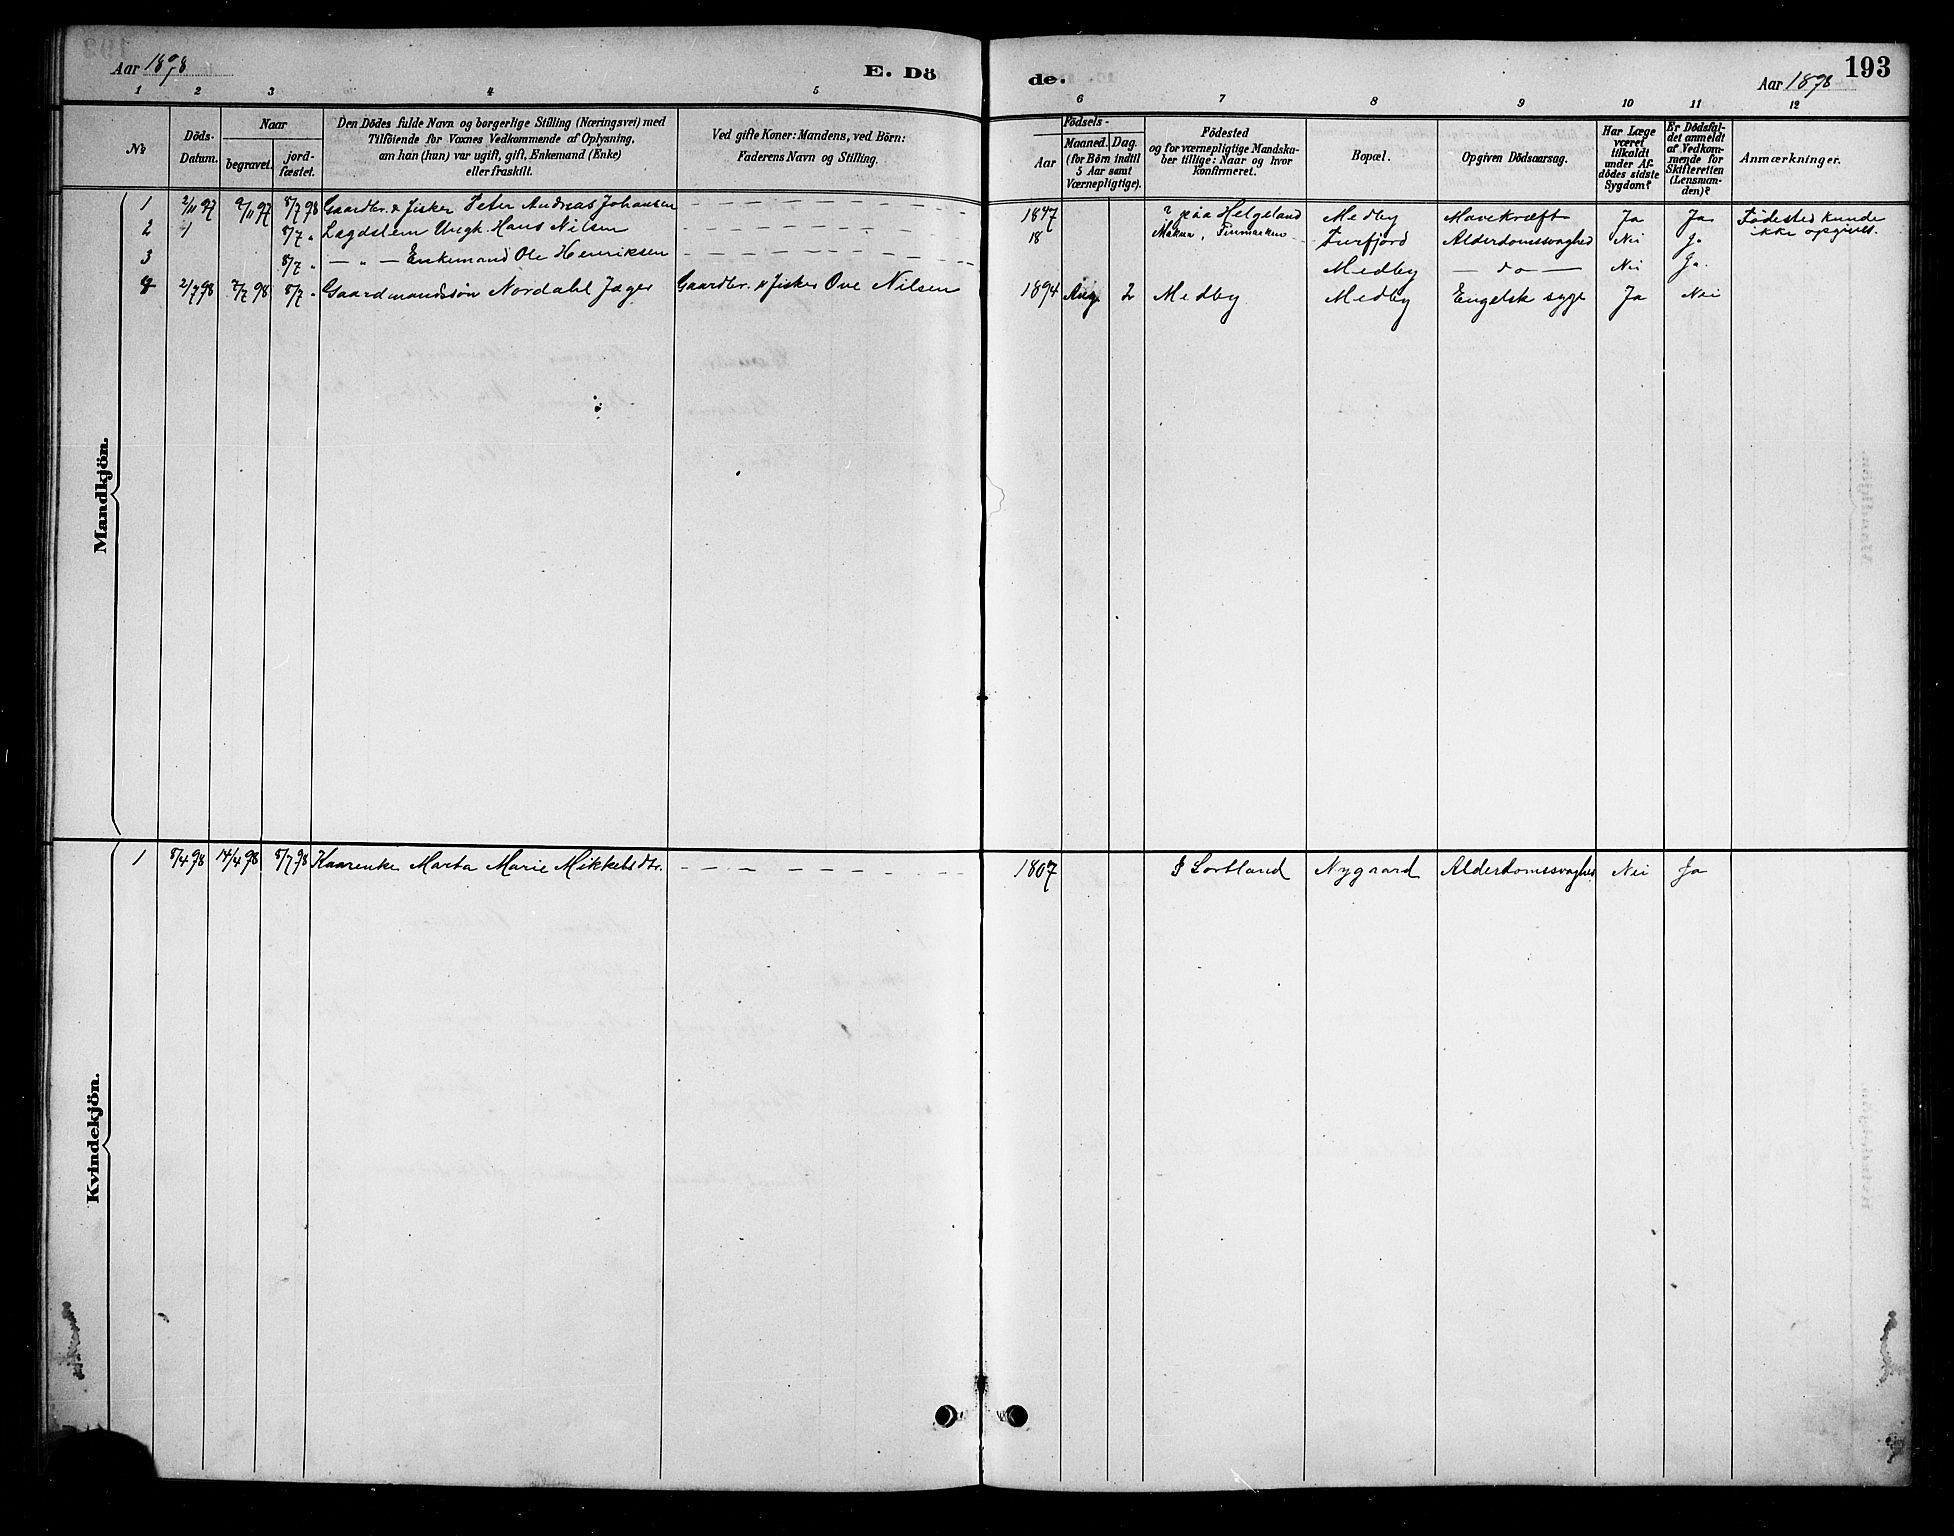 Aar 1898
E. Dö
de.
Aar 1898
193
1 2 3 4 5
6 7 8 9 10 11 12
No
Döds-Datum.
Naar
begravet.
jord-fæstet.
Den Dödes fulde Navn og borgerlige Stilling (Næringsvei) med
Tilföiende for Voxnes Vedkommende af Oplysning,
om han (hun) var ugift, gift, Enkemand (Enke)
eller fraskilt.
Ved gifte Koner: Mandens, ved Börn:
Faderens Navn og Stilling.
Födsels-
Aar
Maaned. Dag.
(for Börn indtil
5 Aar samt
Værnepligtige).
Födested
og for værnepligtige Mandska-
ber tillige: Naar og hvor
konfirmeret.
Bopæl.
Opgiven Dödsaarsag.
Har Læge
været
tilkaldt
under Af-
dödes sidste
Sygdom?
Er Dödsfal-
det anmeldt
af Vedkom-
mende for
Skifteretten
(Lensman-
den)?
Anmærkninger.
Mandkjön.
1 2/11 97 9/11 97 8/7 98 Gaardbr. & Fisker Peter Andreas Johansen 1847 ? paa Helgeland Medby Mavekræft Ja Ja Födested kunde
ikke opgives.
2 8/7 " Lægdslem Ungk. Hans Nilsen 18 Finmarken Alderdomssvaghed Nei Ja
3 8/7 " — " — Enkemand Ole Henriksen Medby — do — Nei Ja.
4 2/7 98 7/7 98 8/7 " Gaardmandssön Nordahl Jager Gaardbr. & Fisker Ove Nilsen 1894 Aug. 2 Medby Medby Engelsk syge Ja Nei
Kvindekjön.
1 8/4 98 14/4 98 8/7 98 Kaarenke Marta Marie Mikkelsdtr. 1807 Sortland Nygaard Alderdomssvaghed Nei Ja